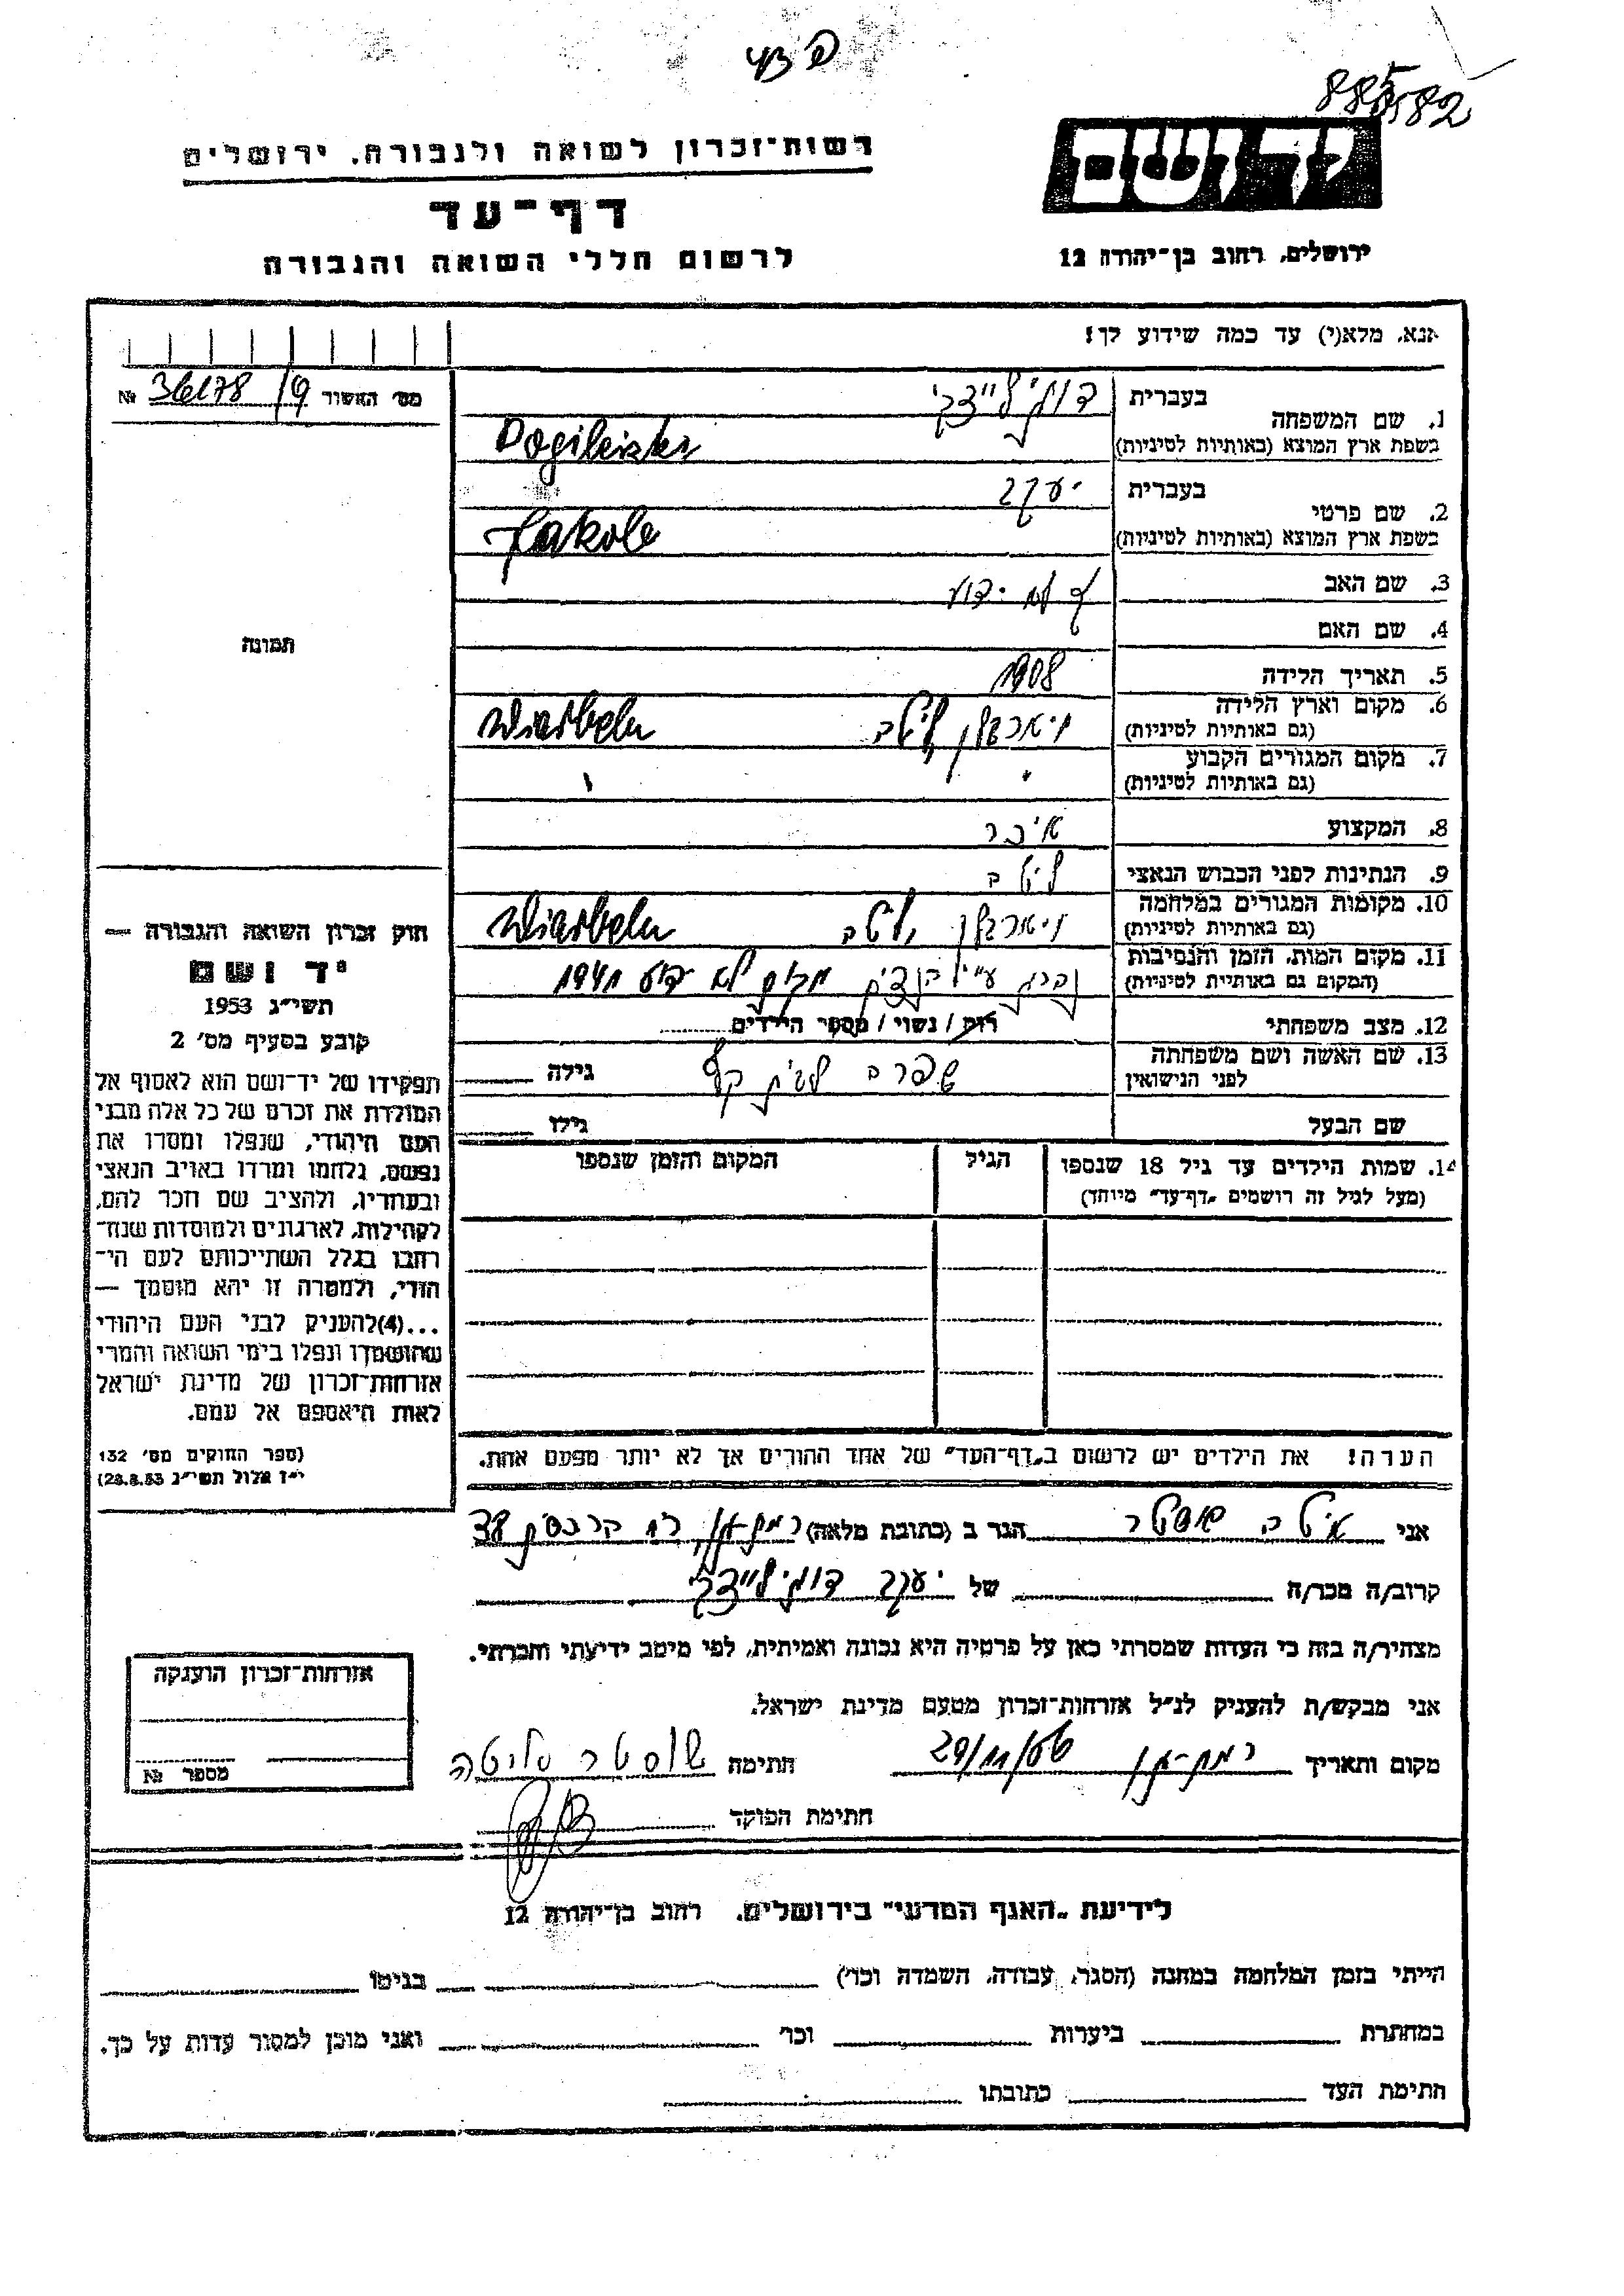 885582
רשות־זכרון לשואה ולגבורה, ירושלים
יד ושם
דף־עד
לרשום חללי השואה והגבורה
ירושלים, רחוב בן־יהודה 12
אנא, מלא(י) עד כמה שידוע לך!
מס׳ האשור 36178/9 №
1. שם המשפחה
בעברית דוגילייצקי
בשפת ארץ המוצא (באותיות לטיניות)
2. שם פרטי
בעברית יעקב
בשפת ארץ המוצא (באותיות לטיניות) Jakob
3. שם האב לא ידוע
4. שם האם
5. תאריך הלידה 1908
6. מקום וארץ הלידה
(גם באותיות לטיניות) ליטב
7. מקום המגורים הקבוע
(גם באותיות לטיניות)
8. המקצוע איכר
9. הנתינות לפני הכבוש הנאצי ליטב
10. מקומות המגורים במלחמה
(גם באותיות לטיניות) ליטב
11. מקום המות, הזמן והנסיבות
(המקום גם באותיות לטיניות) מקום לא ידוע 1941
12. מצב משפחתי רווק / נשוי / מספר הילדים
13. שם האשה ושם משפחתה
לפני הנישואין שפרה לבית גילה
שם הבעל גילו
14. שמות הילדים עד גיל 18 שנספו הגיל המקום והזמן שנספו
(מעל לגיל זה רושמים „דף־עד״ מיוחד)
הערה! את הילדים יש לרשום ב„דף־העד״ של אחד ההורים אך לא יותר מפעם אחת.
תמונה
חוק זכרון השואה והגבורה —
יד ושם
תשי״ג 1953
קובע בסעיף מס׳ 2
תפקידו של יד־ושם הוא לאסוף אל
המולדת את זכרם של כל אלה מבני
העם היהודי, שנפלו ומסרו את
נפשם, נלחמו ומרדו באויב הנאצי
ובעוזריו, ולהציב שם וזכר להם,
לקהילות, לארגונים ולמוסדות שנח־
רחבו בגלל השתייכותם לעם הי־
הודי, ולמטרה זו יהא מוסמך —
...(4)להעניק לבני העם היהודי
שהושמדו ונפלו בימי השואה והמרי
אזרחות־זכרון של מדינת ישראל
לאות היאספם אל עמם.
(ספר החוקים מס׳ 132
י״ז אלול תשי״ג 28.8.53)
אני שוסטר הגר ב (כתובת מלאה) רמת־גן 38
קרוב/ה מכר/ה של יעקב דוגילייצקי
מצהיר/ה בזה כי העדות שמסרתי כאן על פרטיה היא נכונה ואמיתית, לפי מיטב ידיעתי והכרתי.
אני מבקש/ת להעניק לנ״ל אזרחות־זכרון מטעם מדינת ישראל.
מקום ותאריך רמת־גן 29/11/56 חתימה שוסטר
חתימת הפוקד
אזרחות־זכרון הוענקה
מספר №
לידיעת „האגף המדעי״ בירושלים, רחוב בן־יהודה 12
הייתי בזמן המלחמה במחנה (הסגר, עבודה, השמדה וכו׳) בגיטו
במחתרת ביערות וכו׳ ואני מוכן למסור עדות על כך.
חתימת העד כתובתו